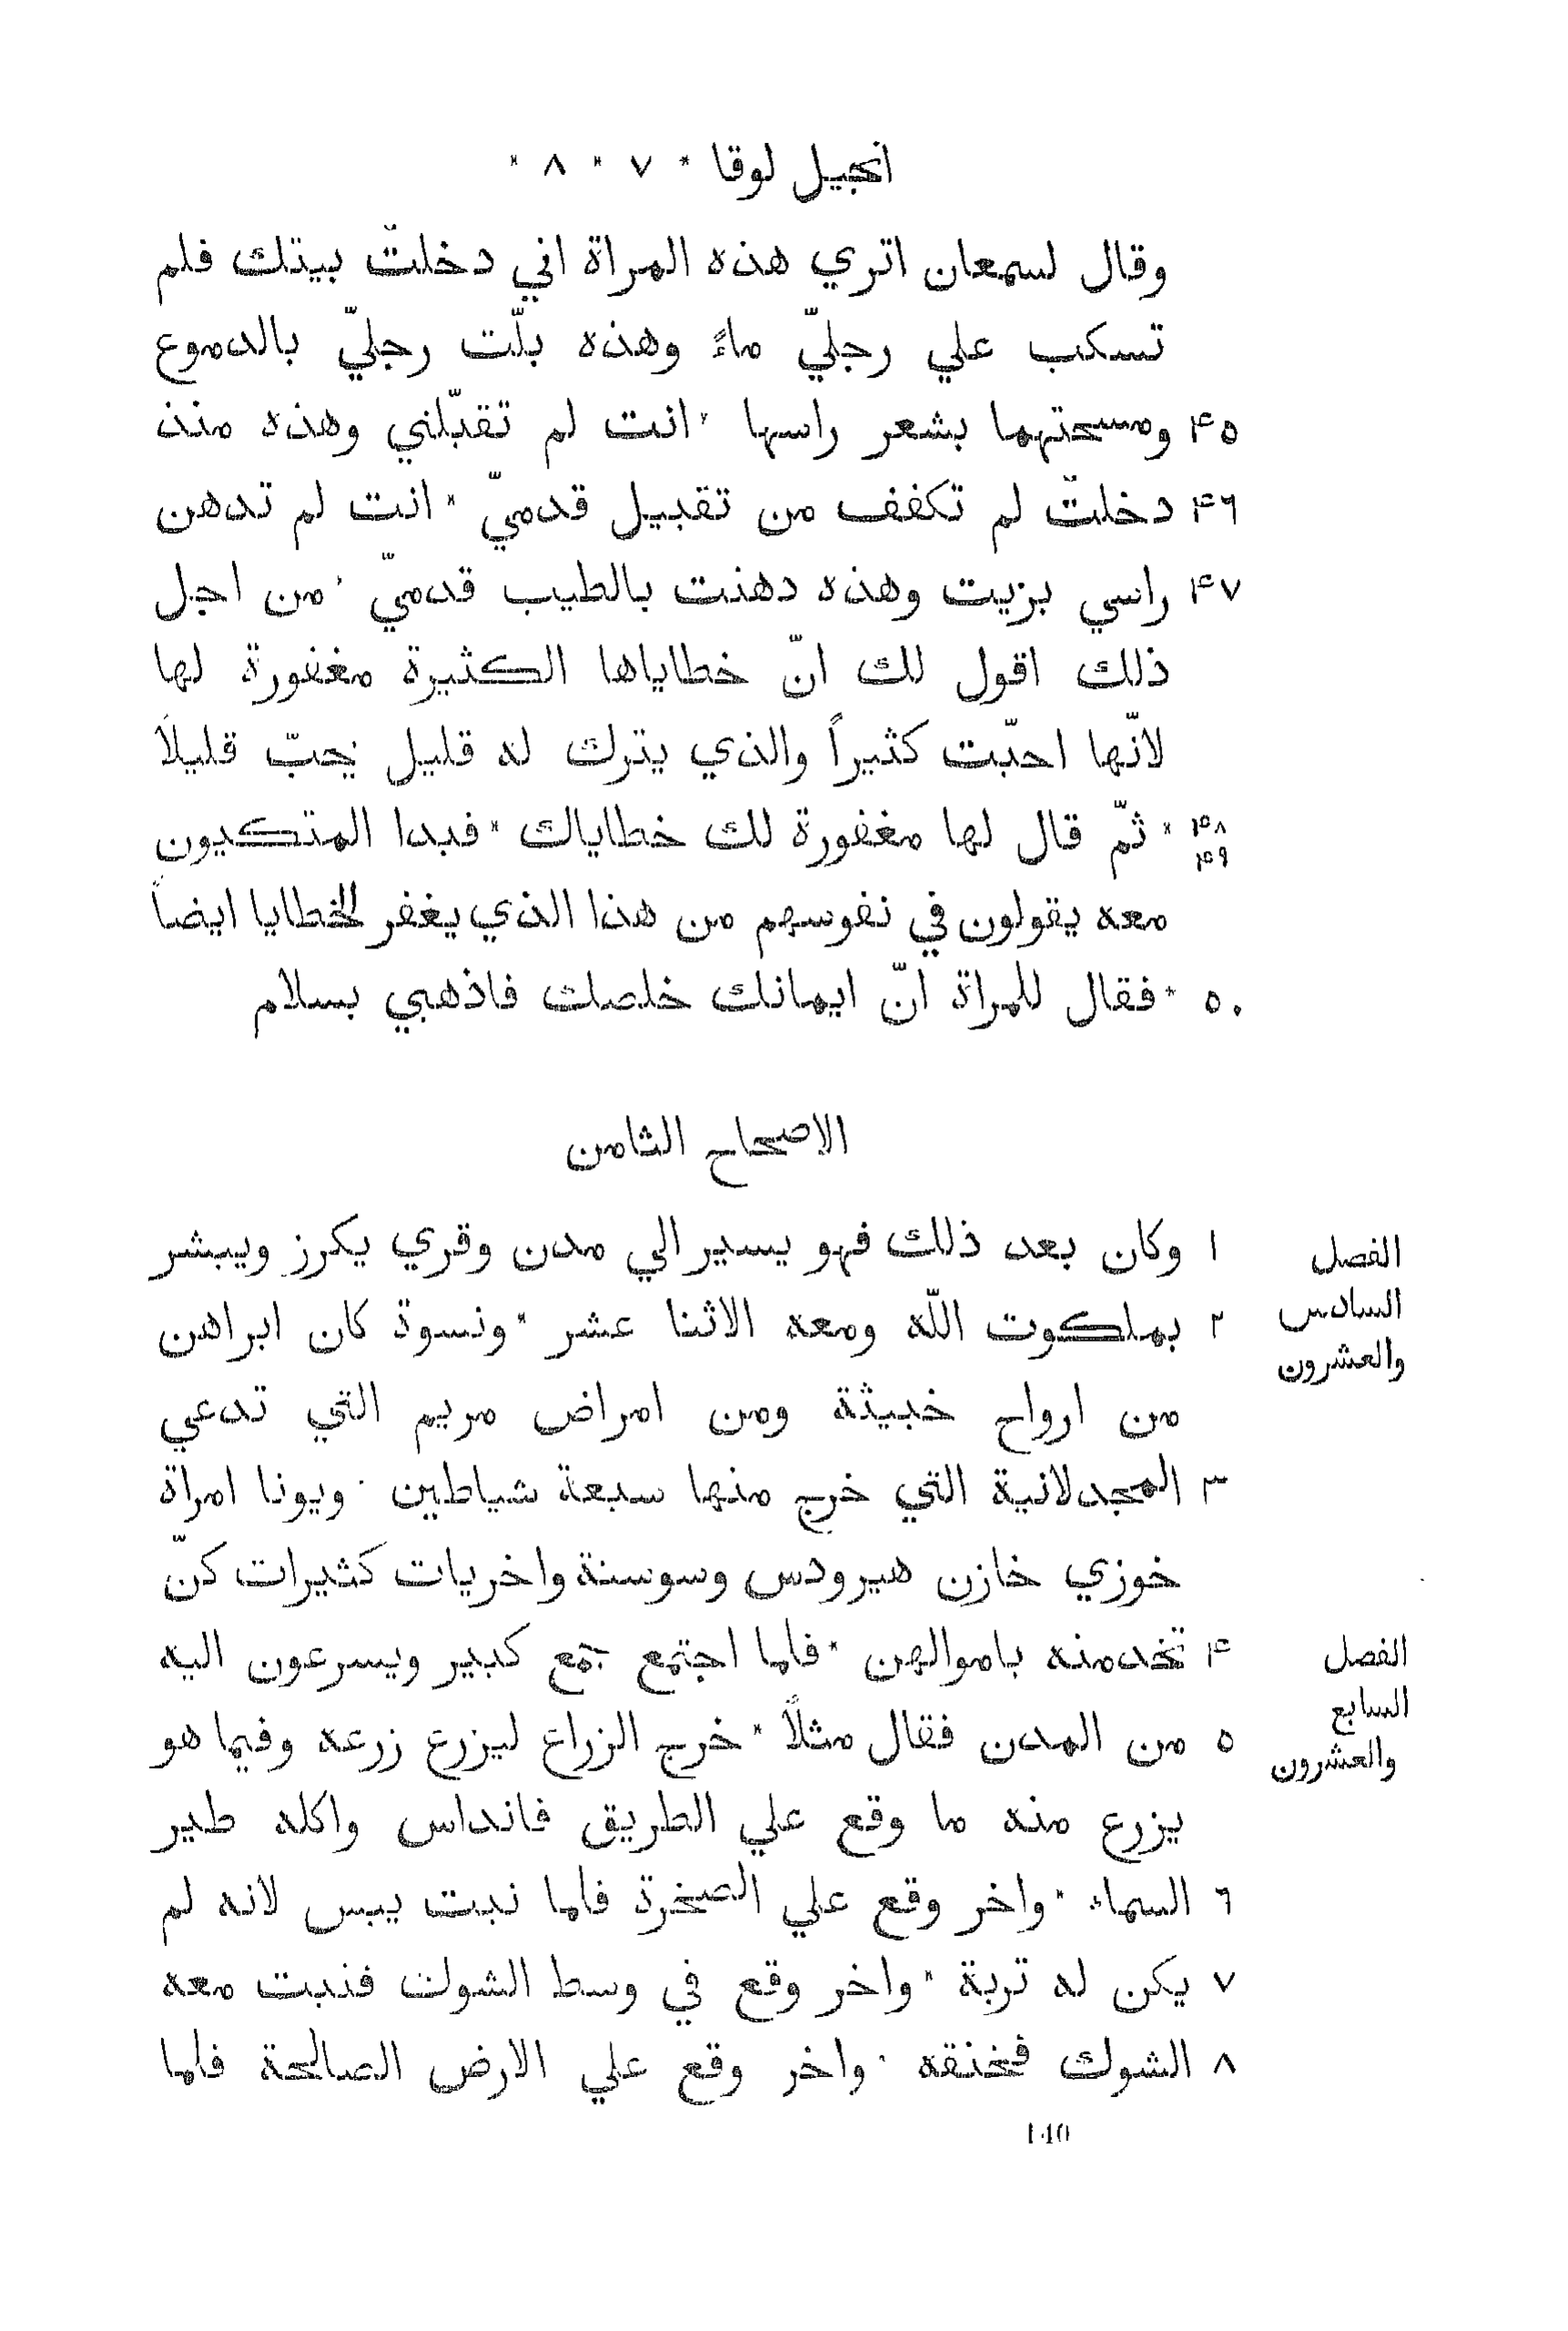 انجيل لوقا * ٧ * ٨ *
وقال لسمعان اتري هذه المراة اني دخلتّ بيتك فلم
تسكب علي رجليّ ماءً وهذه بلّت رجليّ بالدموع
٤٥ ومسحتهما بشعر راسها * انت لم تقبّلني وهذه منذ
٤٦ دخلتّ لم تكفف من تقبيل قدميّ * انت لم تدهن
٤٧ راسي بزيت وهذه دهنت بالطيب قدميّ * من اجل
ذلك اقول لك انّ خطاياها الكثيرة مغفورة لها
لانّها احبّت كثيراً والذي يترك له قليل يحبّ قليلاً
٤٨ * ثمّ قال لها مغفورة لك خطاياك * فبدا المتكيون
٤٩
معه يقولون في نفوسهم من هذا الذي يغفر الخطايا ايضاً
٥٠ * فقال للمراة انّ ايمانك خلصك فاذهبي بسلام
الاصحاح الثامن
الفصل
السادس
والعشرون
١ وكان بعد ذلك فهو يسير الي مدن وقري يكرز ويبشر
٢ بملكوت اللّه ومعه الاثنا عشر * ونسوة كان ابراهن
من ارواح خبيثة ومن امراض مريم التي تدعي
٣ المجدلانية التي خرج منها سبعة شياطين * ويونا امراة
خوزي خازن هيرودس وسوسنة واخريات كثيرات كنّ
الفصل
السابع
والعشرون
٤ تخدمنه باموالهن * فلما اجتمع جمع كبير ويسرعون اليه
٥ من المدن فقال مثلاً * خرج الزراع ليزرع زرعه وفيما هو
يزرع منه ما وقع علي الطريق فانداس واكله طير
٦ السماء * واخر وقع علي الصخرة فلما نبت يبس لانه لم
٧ يكن له تربة * واخر وقع في وسط الشوك فنبت معه
٨ الشوك فخنقه * واخر وقع علي الارض الصالحة فلما
140